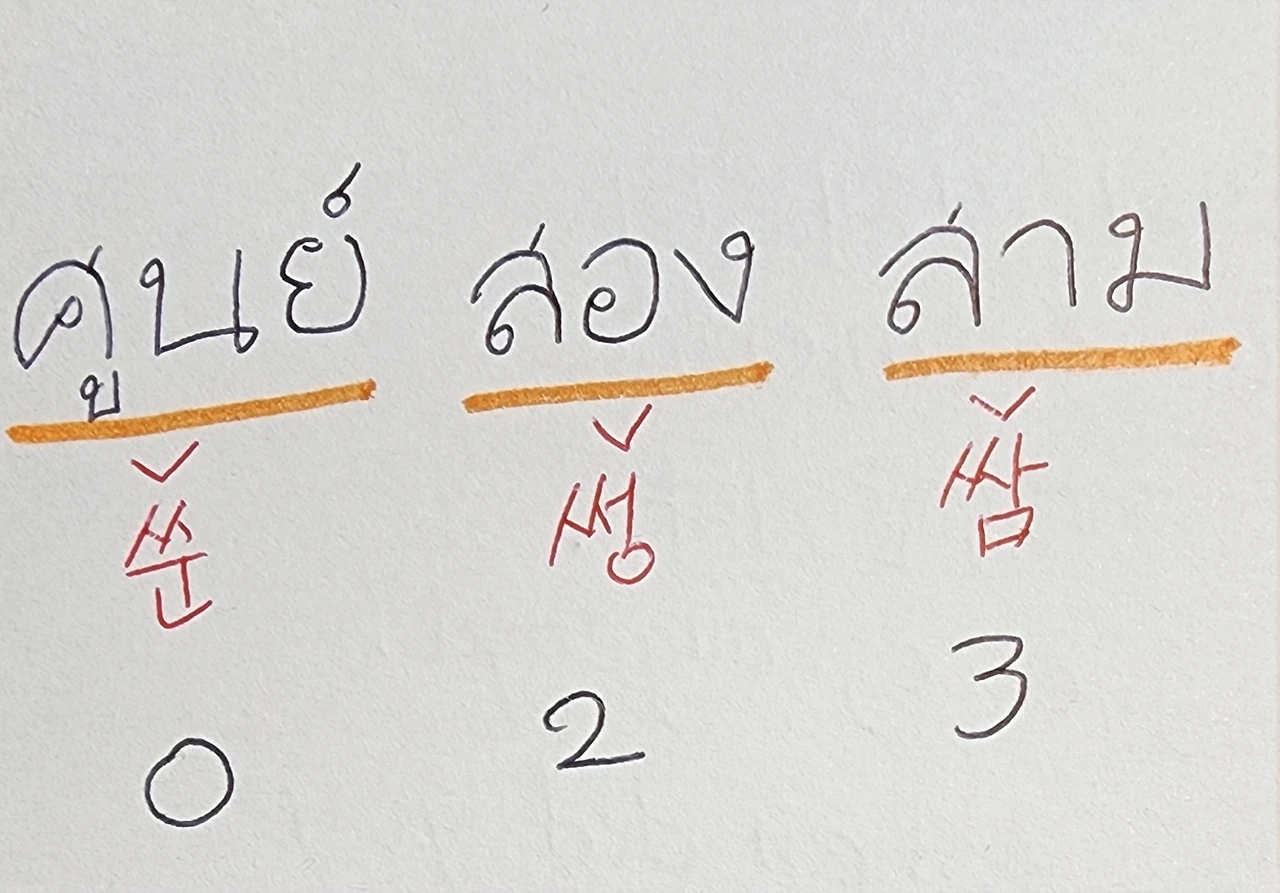 ศูนย์ สอง สาม
쑨 썽 쌈
0 2 3